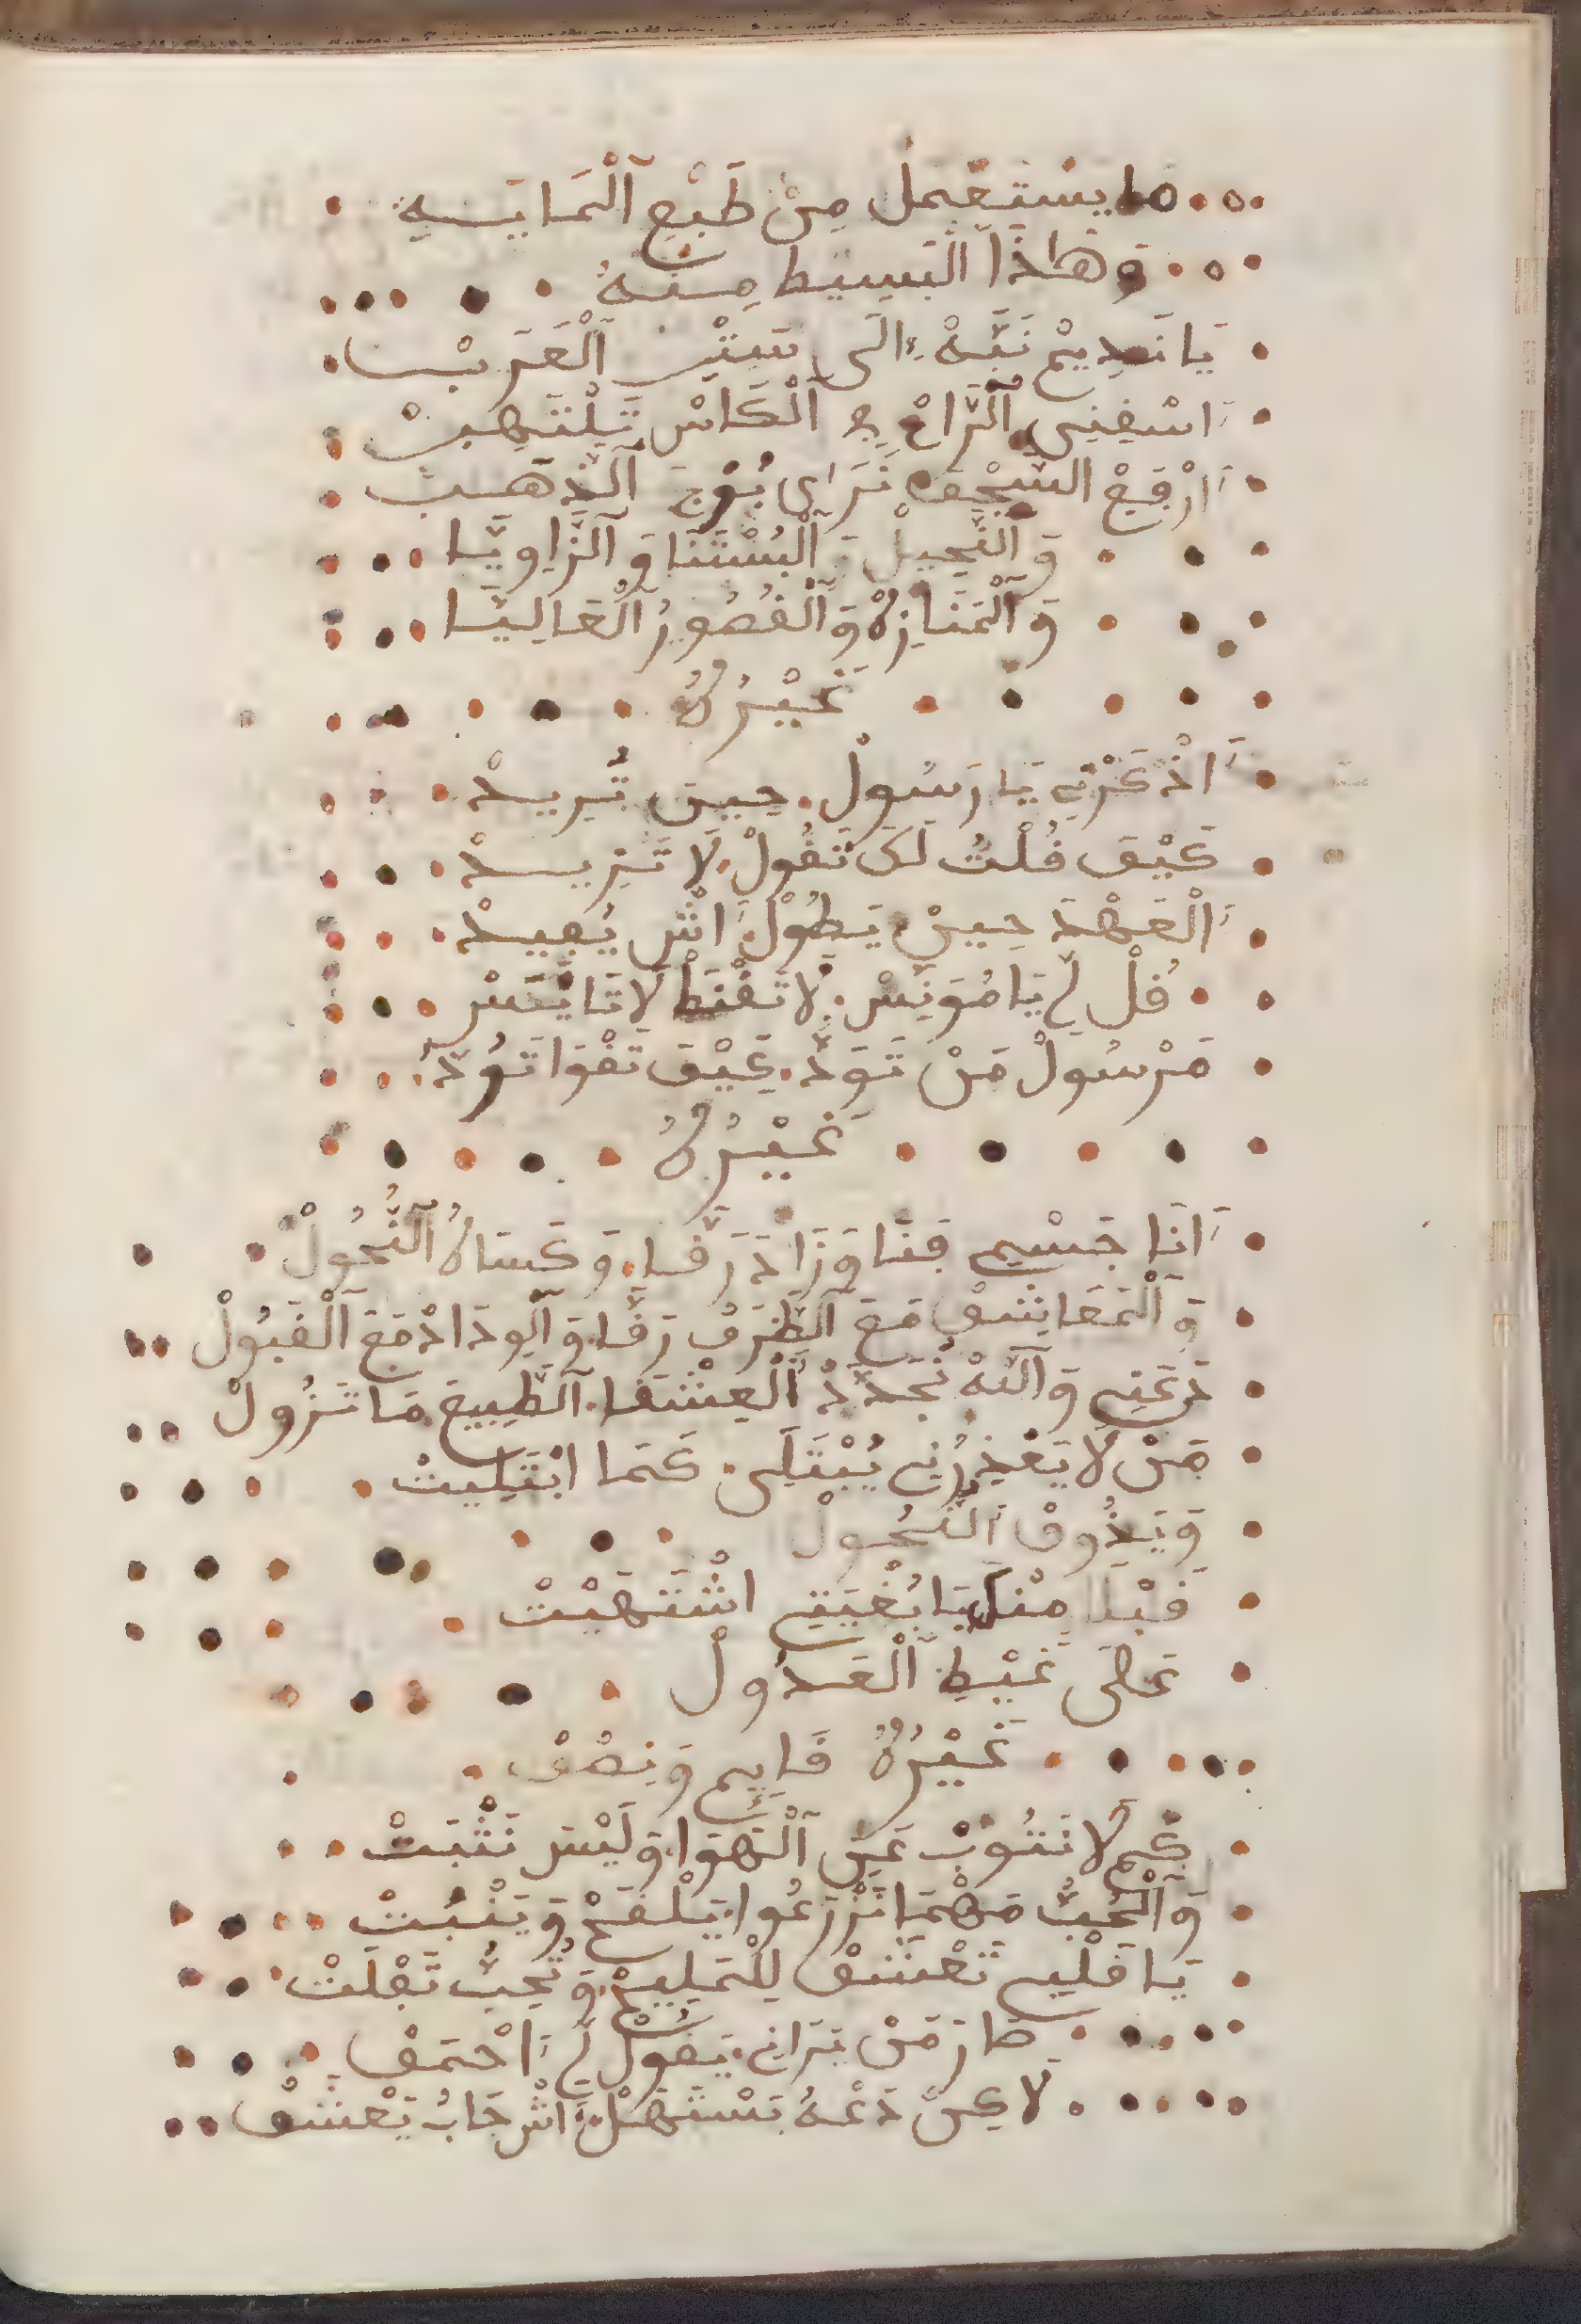 مَا يُسْتَعْمَلْ مِنْ طَبْعِ اَلْمَايَـــهِ
وَهَاذَا الْبَسِيطْ مِنـــهُ
يَا نَدِيمْ نَبَّهْ إِلَى بِنْتِ اَلْعَرَبْ
اَسْقِنِي اَلرَّاحْ فِي اَلْكَاسْ تَلْتَهِبْ
اَرْفَعْ السِّجْفَ تَرَاى بُرْجَ اَلذَّهَبْ
وَالنَّخِيلْ وَ اَلْبُسْتَنَا وَ اَلزَّاوِيَّا
وَ اَلْمَنَازِهْ وَ اَلْقُصُورُ اَلْعَالِيَّا
غَيْرُهُ
اَذْكَرْنِي يَا رَسُولْ حِينَ تُرِيدْ
كَيْفَ قُلْتُ لَكَ تَقُولْ لَا تَزِيدْ
اَلْعَهْدَ حِينْ يَطُولْ اَشْ يُفِيدْ
قُلْ لِي يَا مُوَنِّسْ لَا تَقْنَطْ لَا تَايْئَسْ
مَرْسُولْ مَنْ تَوَدّْ كَيْفَ تَقْوَا تَرُدّْ
غَيْرُهُ
اَنَا جَسْمِي فَنَا وَزَادَ رَقَّا وَكَسَاهُ اَلنُّحُولْ
وَ اَلْمَعَاشِقْ مَعَ اَلطَّرَفْ رَقَّا وَ اَلْوِدَادْ مَعَ اَلْقَبُولْ
دَعْنِي وَ اَللهْ نُجَدِّدْ اَلْعِشْقَا اَلطَّبِيعَ مَا تَزُولْ
مَنْ لَا يَعْذِرُنِي يُبْتَلَى كَمَا ابْتَلِيتْ
وَيَذُوقْ اَلنُّحُولْ
قَبْلَا مِنَّكْ يَا بُغْيَتِي اشْتَهَيْتْ
عَلَى غَيْظِ اَلْعَدُولْ
غَيْرُهُ قَايِمْ وَنِصْفْ
كَمْ لَا نَتُوبْ عَنِ اَلْهَوَا وَلَيْسَ نَثْبَتْ
وَ اَلْحُبُّ مَهْمَا نَزْرَعُوا يَلْقَحْ وَيَنْبُتْ
يَا قَلْبِي تَعْشَقْ لِلْمَلِيحْ وَتُحِبُّ تَفْلَتْ
صَارَ مَنْ يَرَانِي يَقُولْ لِي اَحْمَقْ
لَاكِنْ دَعْهُ يَسْتَهَلْ اَشْ جَابُ يَعْشَقْ